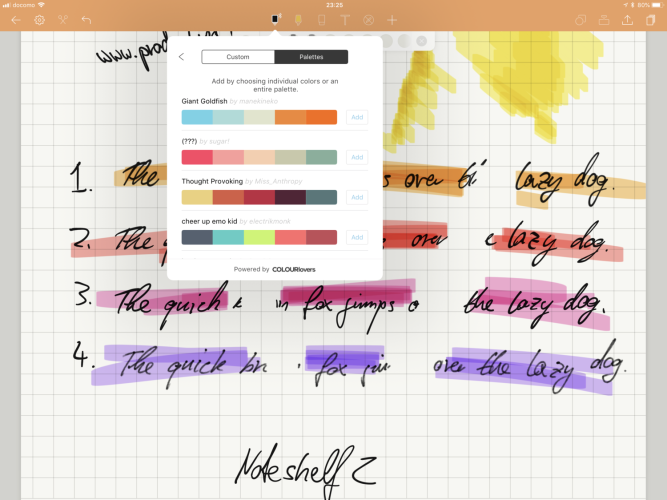 docomo 23:25 80%
www.
Custom Palettes
Add by choosing individual colors or an
entire palette.
Giant Goldfish by manekineko
Add
(???) by sugar!
Add
Thought Provoking by Miss_Anthropy
Add
cheer up emo kid by electrikmonk
Add
Powered by COLOURlovers
1. The s over lazy dog.
2. The over lazy dog.
3. The quick fox jimps the lazy dog.
4. The quick fox over the lazy dog.
Noteshelf 2